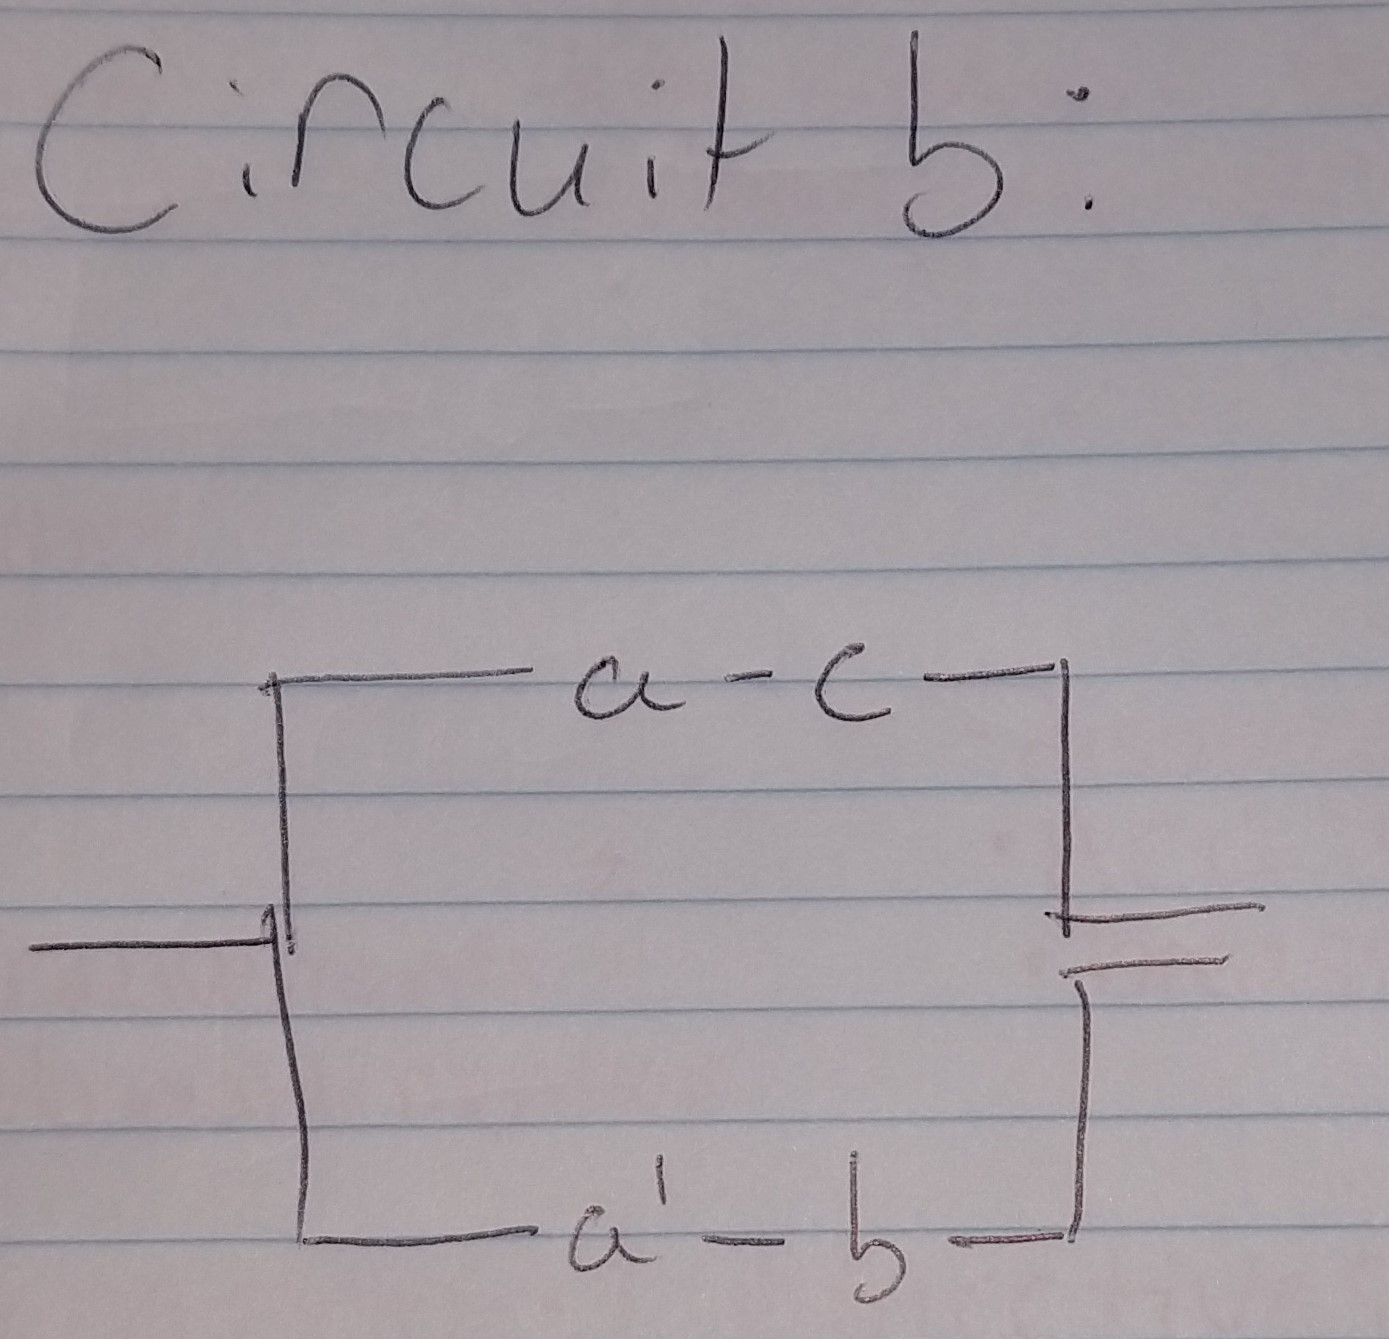 Circuit b:
a - c
a' - b